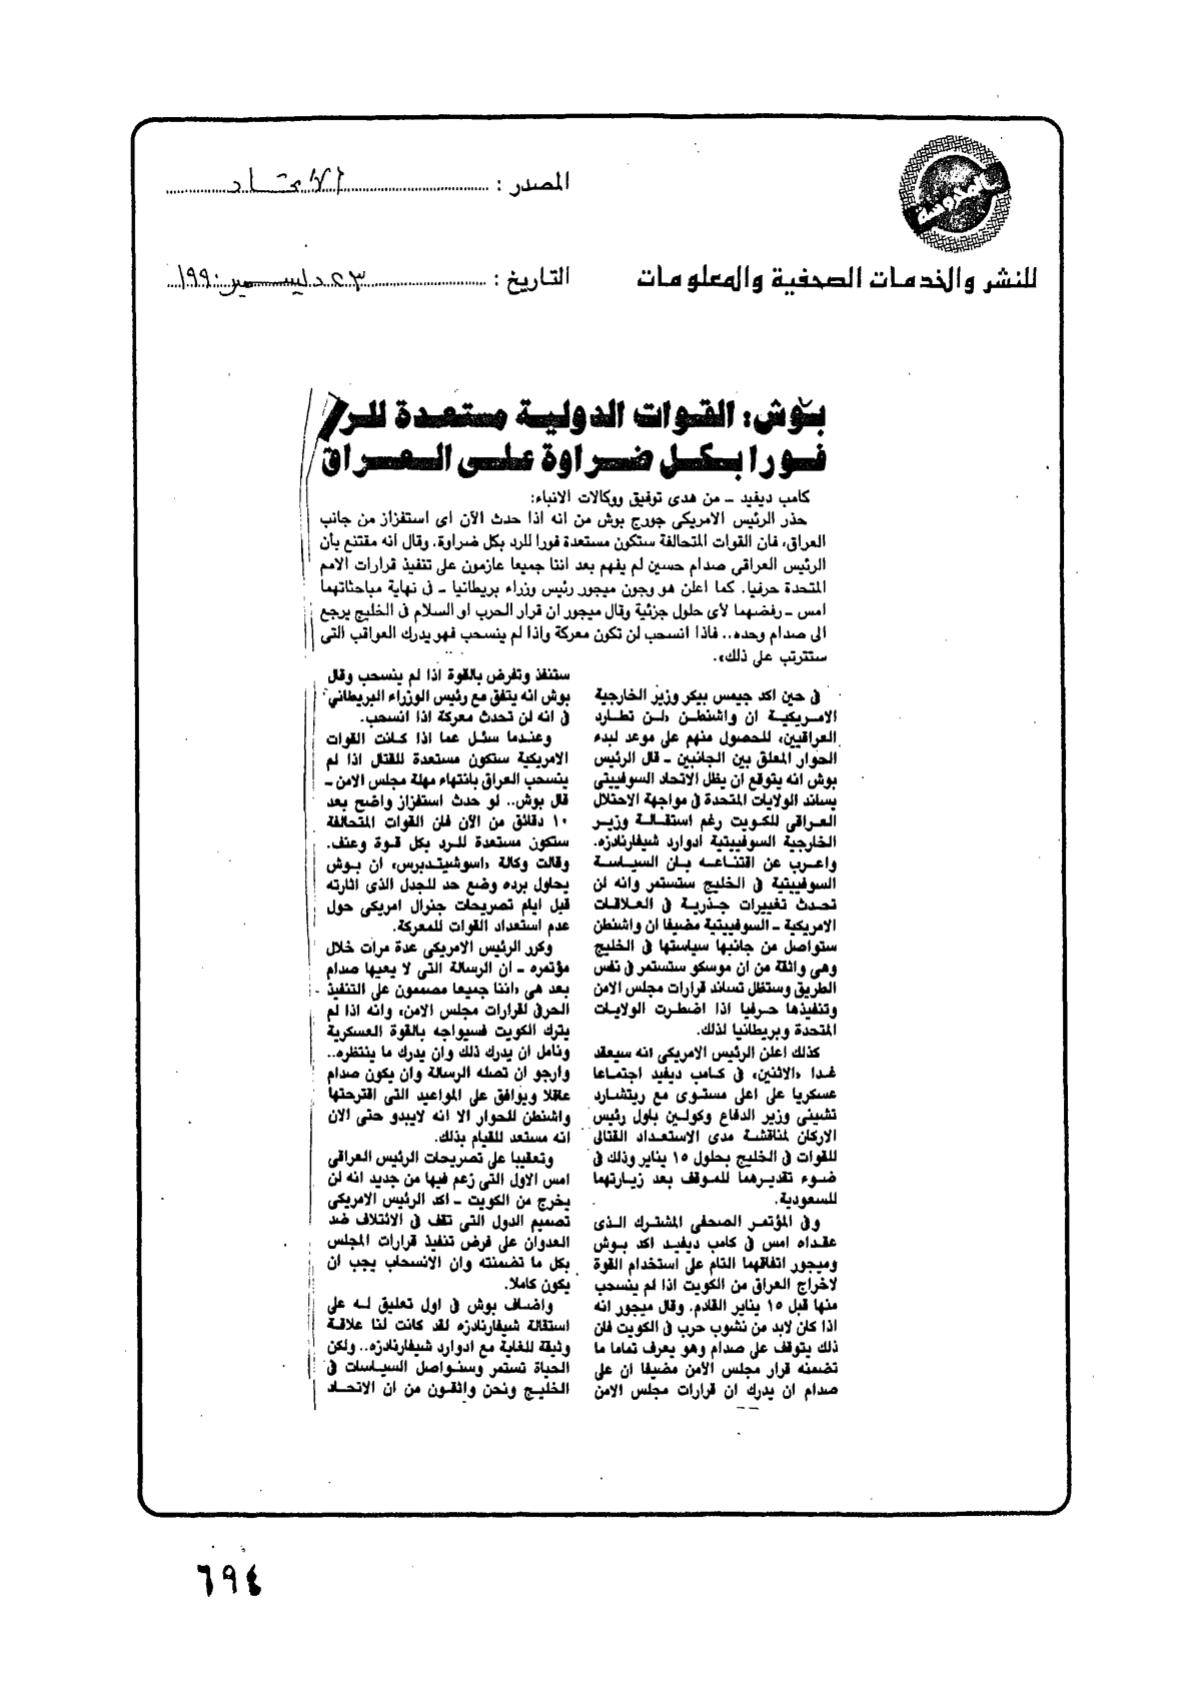 المصدر : الاتحاد
للنشر والخدمات الصحفية والمعلومات
التاريخ : ٢٣ ديسمبر ١٩٩٠
بوش: القوات الدولية مستعدة للر
فورا بكل ضراوة على العراق
كامب ديفيد ـ من هدى توفيق ووكالات الانباء:
حذر الرئيس الامريكى جورج بوش من انه اذا حدث الآن اى استفزاز من جانب
العراق، فان القوات المتحالفة ستكون مستعدة فورا للرد بكل ضراوة. وقال انه مقتنع بأن
الرئيس العراقى صدام حسين لم يفهم بعد اننا جميعا عازمون على تنفيذ قرارات الامم
المتحدة حرفيا. كما اعلن هو وجون ميجور رئيس وزراء بريطانيا ـ فى نهاية مباحثاتهما
امس ـ رفضهما لأى حلول جزئية وقال ميجور ان قرار الحرب او السلام فى الخليج يرجع
الى صدام وحده.. فاذا انسحب لن تكون معركة واذا لم ينسحب فهو يدرك العواقب التى
ستترتب على ذلك».
فى حين اكد جيمس بيكر وزير الخارجية
الامريكية ان واشنطن «لن تطارد
العراقيين» للحصول منهم على موعد لبدء
الحوار المعلق بين الجانبين ـ قال الرئيس
بوش انه يتوقع ان يظل الاتحاد السوفييتى
يساند الولايات المتحدة فى مواجهة الاحتلال
العراقى للكويت رغم استقالة وزير
الخارجية السوفييتية ادوارد شيفارنادزه.
واعرب عن اقتناعه بان السياسة
السوفييتية فى الخليج ستستمر وانه لن
تحدث تغييرات جذرية فى العلاقات
الامريكية ـ السوفييتية مضيفا ان واشنطن
ستواصل من جانبها سياستها فى الخليج
وهى واثقة من ان موسكو ستستمر فى نفس
الطريق وستظل تساند قرارات مجلس الامن
وتنفيذها حرفيا اذا اضطرت الولايات
المتحدة وبريطانيا لذلك.
كذلك اعلن الرئيس الامريكى انه سيعقد
غدا «الاثنين» فى كامب ديفيد اجتماعا
عسكريا على اعلى مستوى مع ريتشارد
تشينى وزير الدفاع وكولين باول رئيس
الاركان لمناقشة مدى الاستعداد القتالى
للقوات فى الخليج بحلول ١٥ يناير وذلك فى
ضوء تقديرهما للموقف بعد زيارتهما
للسعودية.
وفى المؤتمر الصحفى المشترك الذى
عقداه امس فى كامب ديفيد اكد بوش
وميجور اتفاقهما التام على استخدام القوة
لاخراج العراق من الكويت اذا لم ينسحب
منها قبل ١٥ يناير القادم. وقال ميجور انه
اذا كان لابد من نشوب حرب فى الكويت فان
ذلك يتوقف على صدام وهو يعرف تماما ما
تضمنه قرار مجلس الامن مضيفا ان على
صدام ان يدرك ان قرارات مجلس الامن
ستنفذ وتفرض بالقوة اذا لم ينسحب وقال
بوش انه يتفق مع رئيس الوزراء البريطانى
فى انه لن تحدث معركة اذا انسحب.
وعندما سئل عما اذا كانت القوات
الامريكية ستكون مستعدة للقتال اذا لم
ينسحب العراق بانتهاء مهلة مجلس الامن ـ
قال بوش.. لو حدث استفزاز واضح بعد
١٠ دقائق من الآن فان القوات المتحالفة
ستكون مستعدة للرد بكل قوة وعنف.
وقالت وكالة «اسوشيتدبرس» ان بوش
يحاول برده وضع حد للجدل الذى اثارته
قبل ايام تصريحات جنرال امريكى حول
عدم استعداد القوات للمعركة.
وكرر الرئيس الامريكى عدة مرات خلال
مؤتمره ـ ان الرسالة التى لا يعيها صدام
بعد هى «اننا جميعا مصممون على التنفيذ
الحرفى لقرارات مجلس الامن» وانه اذا لم
يترك الكويت فسيواجه بالقوة العسكرية
ونامل ان يدرك ذلك وان يدرك ما ينتظره..
وارجو ان تصله الرسالة وان يكون صدام
عاقلا ويوافق على المواعيد التى اقترحتها
واشنطن للحوار الا انه لايبدو حتى الان
انه مستعد للقيام بذلك.
وتعقيبا على تصريحات الرئيس العراقى
امس الاول التى زعم فيها من جديد انه لن
يخرج من الكويت ـ اكد الرئيس الامريكى
تصميم الدول التى تقف فى الائتلاف ضد
العدوان على فرض تنفيذ قرارات المجلس
بكل ما تضمنته وان الانسحاب يجب ان
يكون كاملا.
واضاف بوش فى اول تعليق له على
استقالة شيفارنادزه لقد كانت لنا علاقة
وثيقة للغاية مع ادوارد شيفارنادزه.. ولكن
الحياة تستمر وسنواصل السياسات فى
الخليج ونحن واثقون من ان الاتحاد
٦٩٤